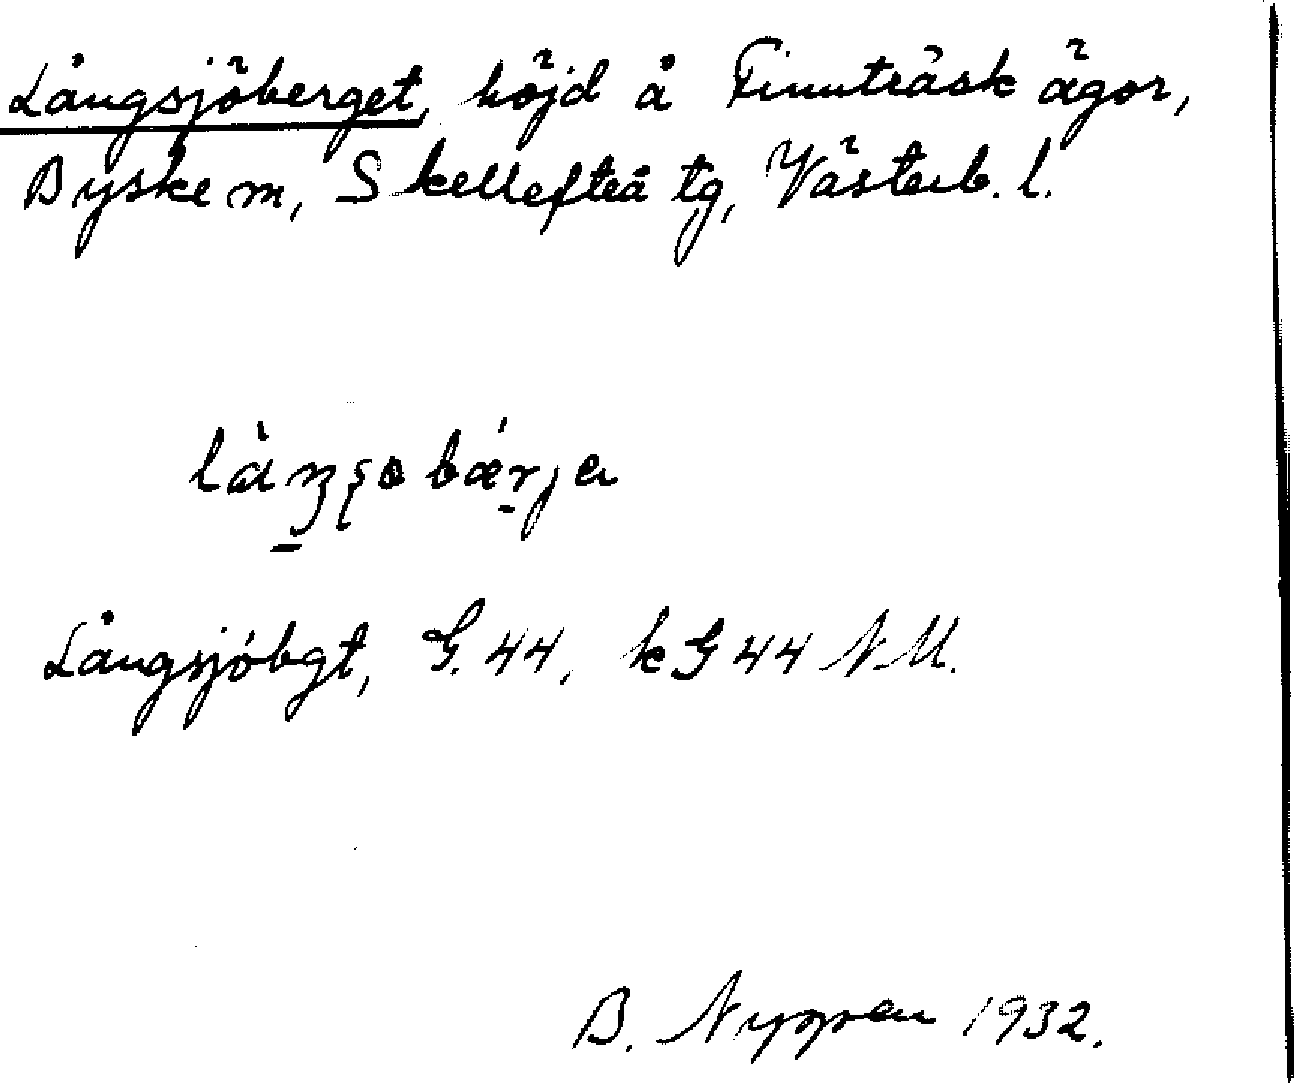 Långsjöberget, höjd å Finnträsk ägor,
Byske sn, Skellefteå tg, Västerb. l.
Långsjöbgt, G. 44, kG 44 N.M.
B. 1932.